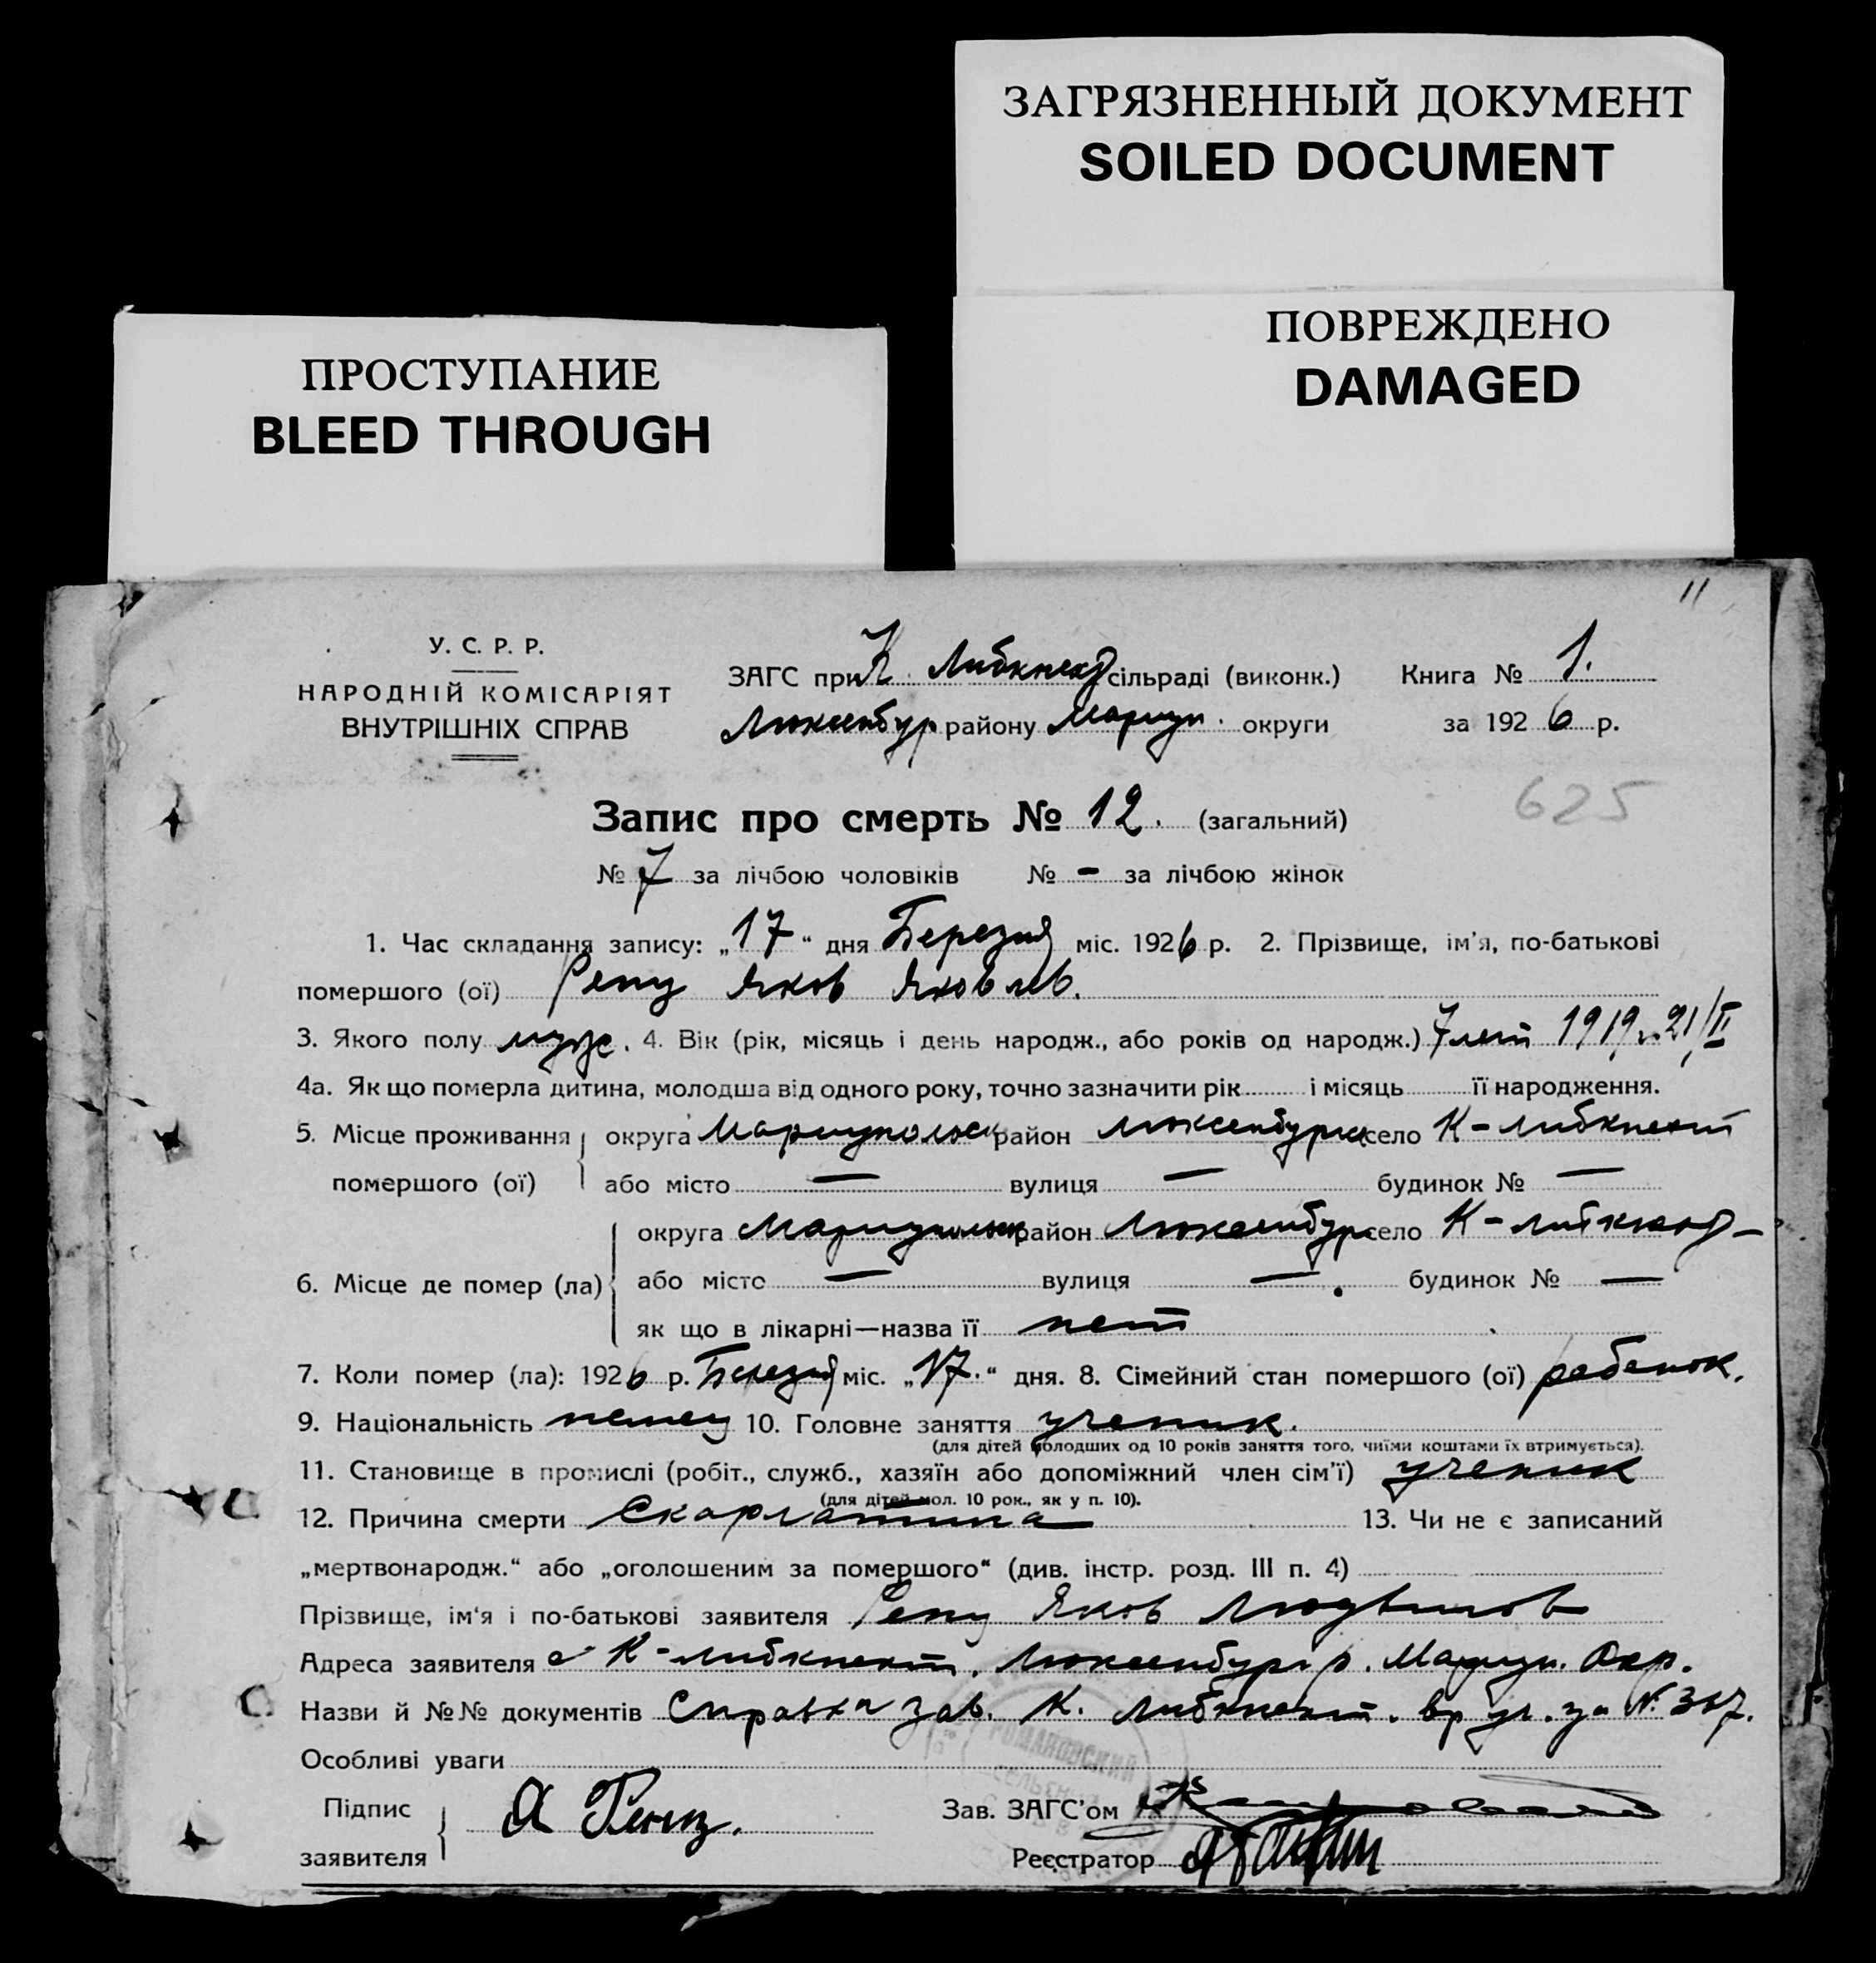 ЗАГРЯЗНЕННЫЙ ДОКУМЕНТ
SOILED DOCUMENT
ПОВРЕЖДЕНО
DAMAGED
ПРОСТУПАНИЕ
BLEED THROUGH
11
У. С. Р. Р.
НАРОДНІЙ КОМІСАРІЯТ
ВНУТРІШНІХ СПРАВ
ЗАГС при К. Либкнехт сільраді (виконк.) Книга № 1.
Люксенбур району Мариуп. округи за 1926 р.
625
Запис про смерть № 12. (загальний)
№ 7 за лічбою чоловіків № - за лічбою жінок
1. Час складання запису: „17“ дня Березня міс. 1926 р. 2. Прізвище, ім'я, по-батькові
помершого (ої) Ренц Яков Яковлев.
3. Якого полу муж. 4. Вік (рік, місяць і день народж., або років од народж.) 7 лет 1919 г. 21/II
4а. Як що померла дитина, молодша від одного року, точно зазначити рік і місяць її народження.
5. Місце проживання помершого (ої) округа Мариупольск район Люксенбургск село К-Либкнехт
або місто — вулиця — будинок № —
6. Місце де помер (ла) округа Мариупольск район Люксенбург село К-Либкнехт
або місто — вулиця — будинок № —
як що в лікарні—назва її нет
7. Коли помер (ла): 1926 р. Березня міс. „17.“ дня. 8. Сімейний стан помершого (ої) ребенок.
9. Національність немец 10. Головне заняття ученик.
(для дітей молодших од 10 років заняття того, чиїми коштами їх втримується).
11. Становище в промислі (робіт., служб., хазяїн або допоміжний член сім'ї) ученик
(для дітей мол. 10 рок., як у п. 10).
12. Причина смерти Скарлатина 13. Чи не є записаний
„мертвонародж.“ або „оголошеним за помершого“ (див. інстр. розд. III п. 4)
Прізвище, ім'я і по-батькові заявителя Ренц Яков Людвигов
Адреса заявителя с К-Либкнехт, Люксенбург р. Мариуп. Окр.
Назви й №№ документів Справка зав. К. Либкнехт. вр. уч. за № 367.
Особливі уваги
РОМАНОВСКИЙ
Підпис заявителя Я Ренц.
Зав. ЗАГС'ом
Реєстратор